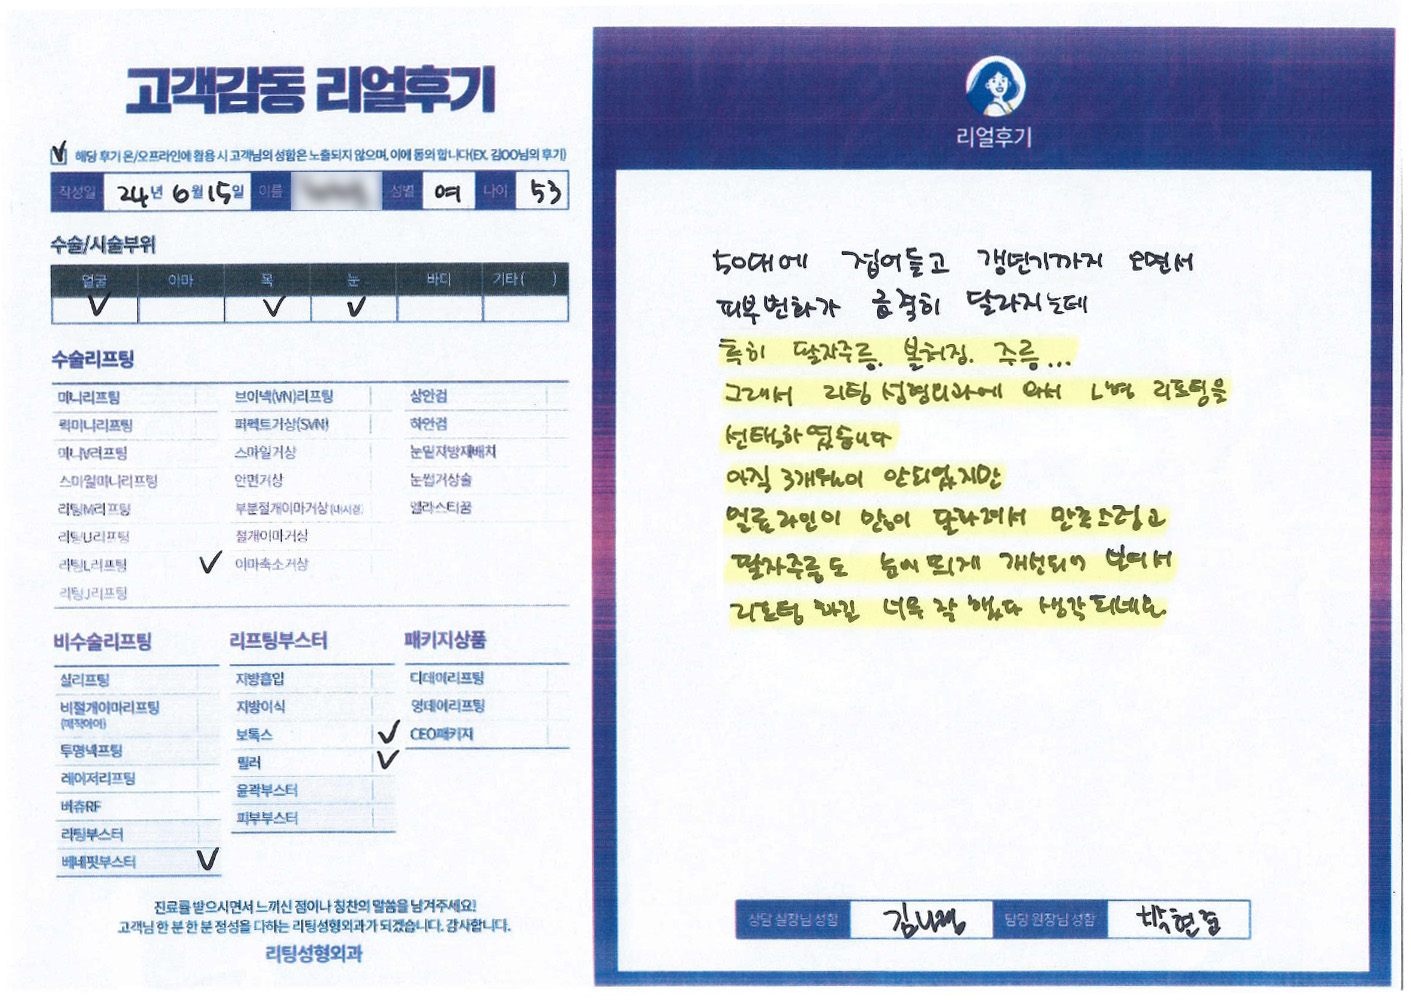 고객감동 리얼후기
해당 후기 온/오프라인에 활용 시 고객님의 성함은 노출되지 않으며, 이에 동의 합니다(EX. 김OO님의 후기)
작성일 24년 6월 15일 이름 성별 여 나이 53
수술/시술부위
얼굴 이마 목 눈 바디 기타( )
수술리프팅
미니리프팅 브이넥(VN)리프팅 상안검
퀵미니리프팅 퍼펙트거상(SVN) 하안검
미니V리프팅 스마일거상 눈밑지방재배치
스마일미니리프팅 안면거상 눈썹거상술
리팅M리프팅 부분절개이마거상(내시경) 엘라스티꿈
리팅U리프팅 절개이마거상
리팅L리프팅 이마축소거상
리팅J리프팅
비수술리프팅
실리프팅
비절개이마리프팅
투명넥프팅
레이저리프팅
버츄RF
리팅부스터
베네핏부스터
리프팅부스터
지방흡입
지방이식
보톡스
필러
윤곽부스터
피부부스터
패키지상품
디데이리프팅
영데이리프팅
CEO패키지
진료를 받으시면서 느끼신 점이나 칭찬의 말씀을 남겨주세요!
고객님 한 분 한 분 정성을 다하는 리팅성형외과가 되겠습니다. 감사합니다.
리팅성형외과
리얼후기
50대에 접어들고 갱년기까지 오면서
피부변화가 급격히 달라지는데
특히 팔자주름, 볼처짐, 주름...
그래서 리팅성형외과에 와서 L병 리프팅을
선택하였습니다
아직 3개월이 안되었지만
얼굴라인이 많이 달라져서 만족스럽고
팔자주름도 눈에 띄게 개선되어 보여서
리프팅 하길 너무 잘 했다 생각되네요
상담 실장님 성함 담당 원장님 성함 박현준